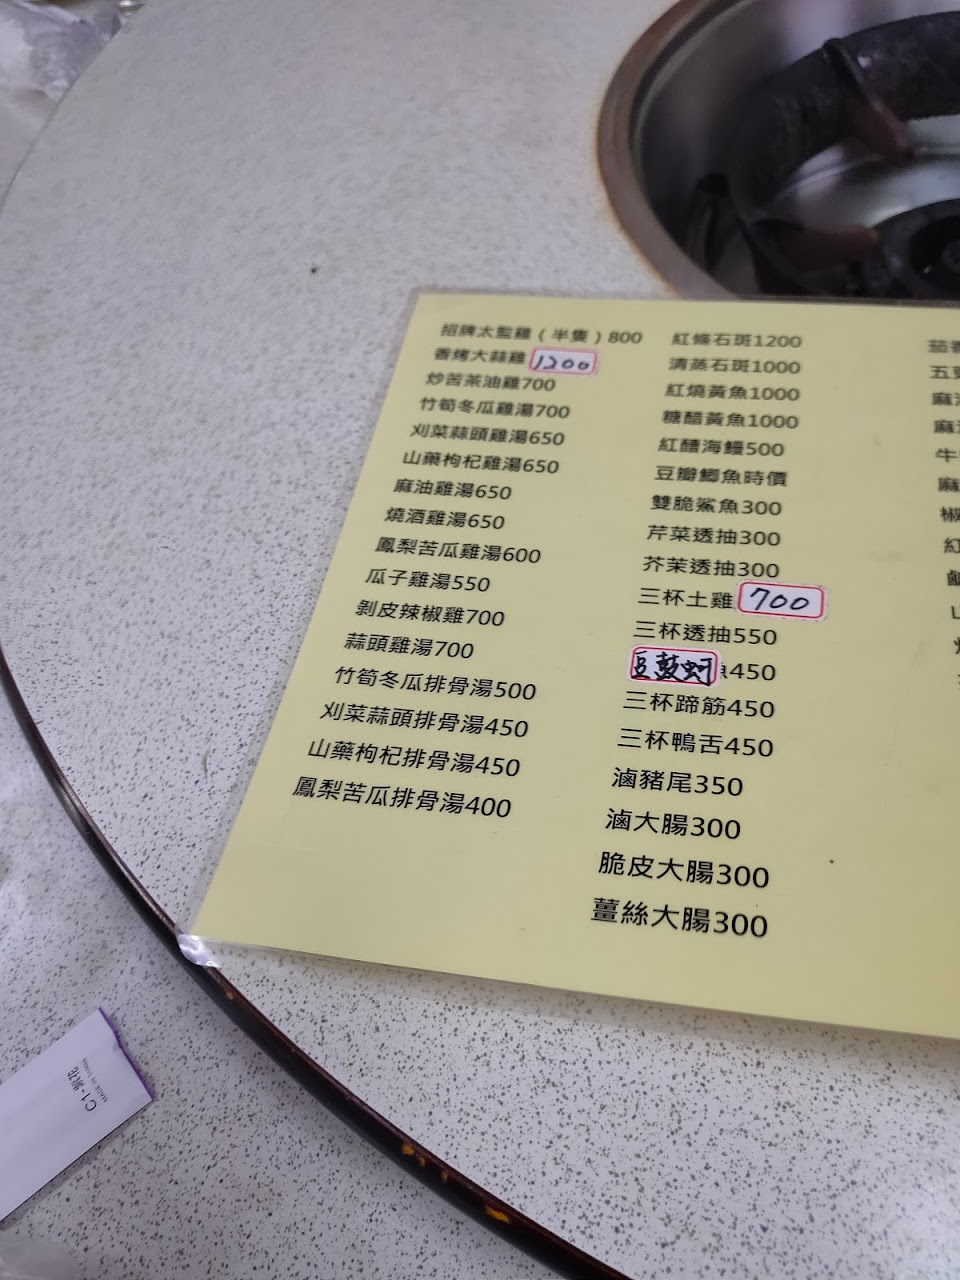 招牌太監雞（半隻）800
香烤大蒜雞 1200
炒苦茶油雞700
竹筍冬瓜雞湯700
刈菜蒜頭雞湯650
山藥枸杞雞湯650
麻油雞湯650
燒酒雞湯650
鳳梨苦瓜雞湯600
瓜子雞湯550
剝皮辣椒雞700
蒜頭雞湯700
竹筍冬瓜排骨湯500
刈菜蒜頭排骨湯450
山藥枸杞排骨湯450
鳳梨苦瓜排骨湯400
紅條石斑1200
清蒸石斑1000
紅燒黃魚1000
糖醋黃魚1000
紅糟海鰻500
豆瓣鯽魚時價
雙脆鯊魚300
芹菜透抽300
芥茉透抽300
三杯土雞 700
三杯透抽550
豆鼓蚵 450
三杯蹄筋450
三杯鴨舌450
滷豬尾350
滷大腸300
脆皮大腸300
薑絲大腸300
茄
五
麻
麻
牛
麻
椒
紅
鹹
山
C1-紫花
MADE IN TAIWAN